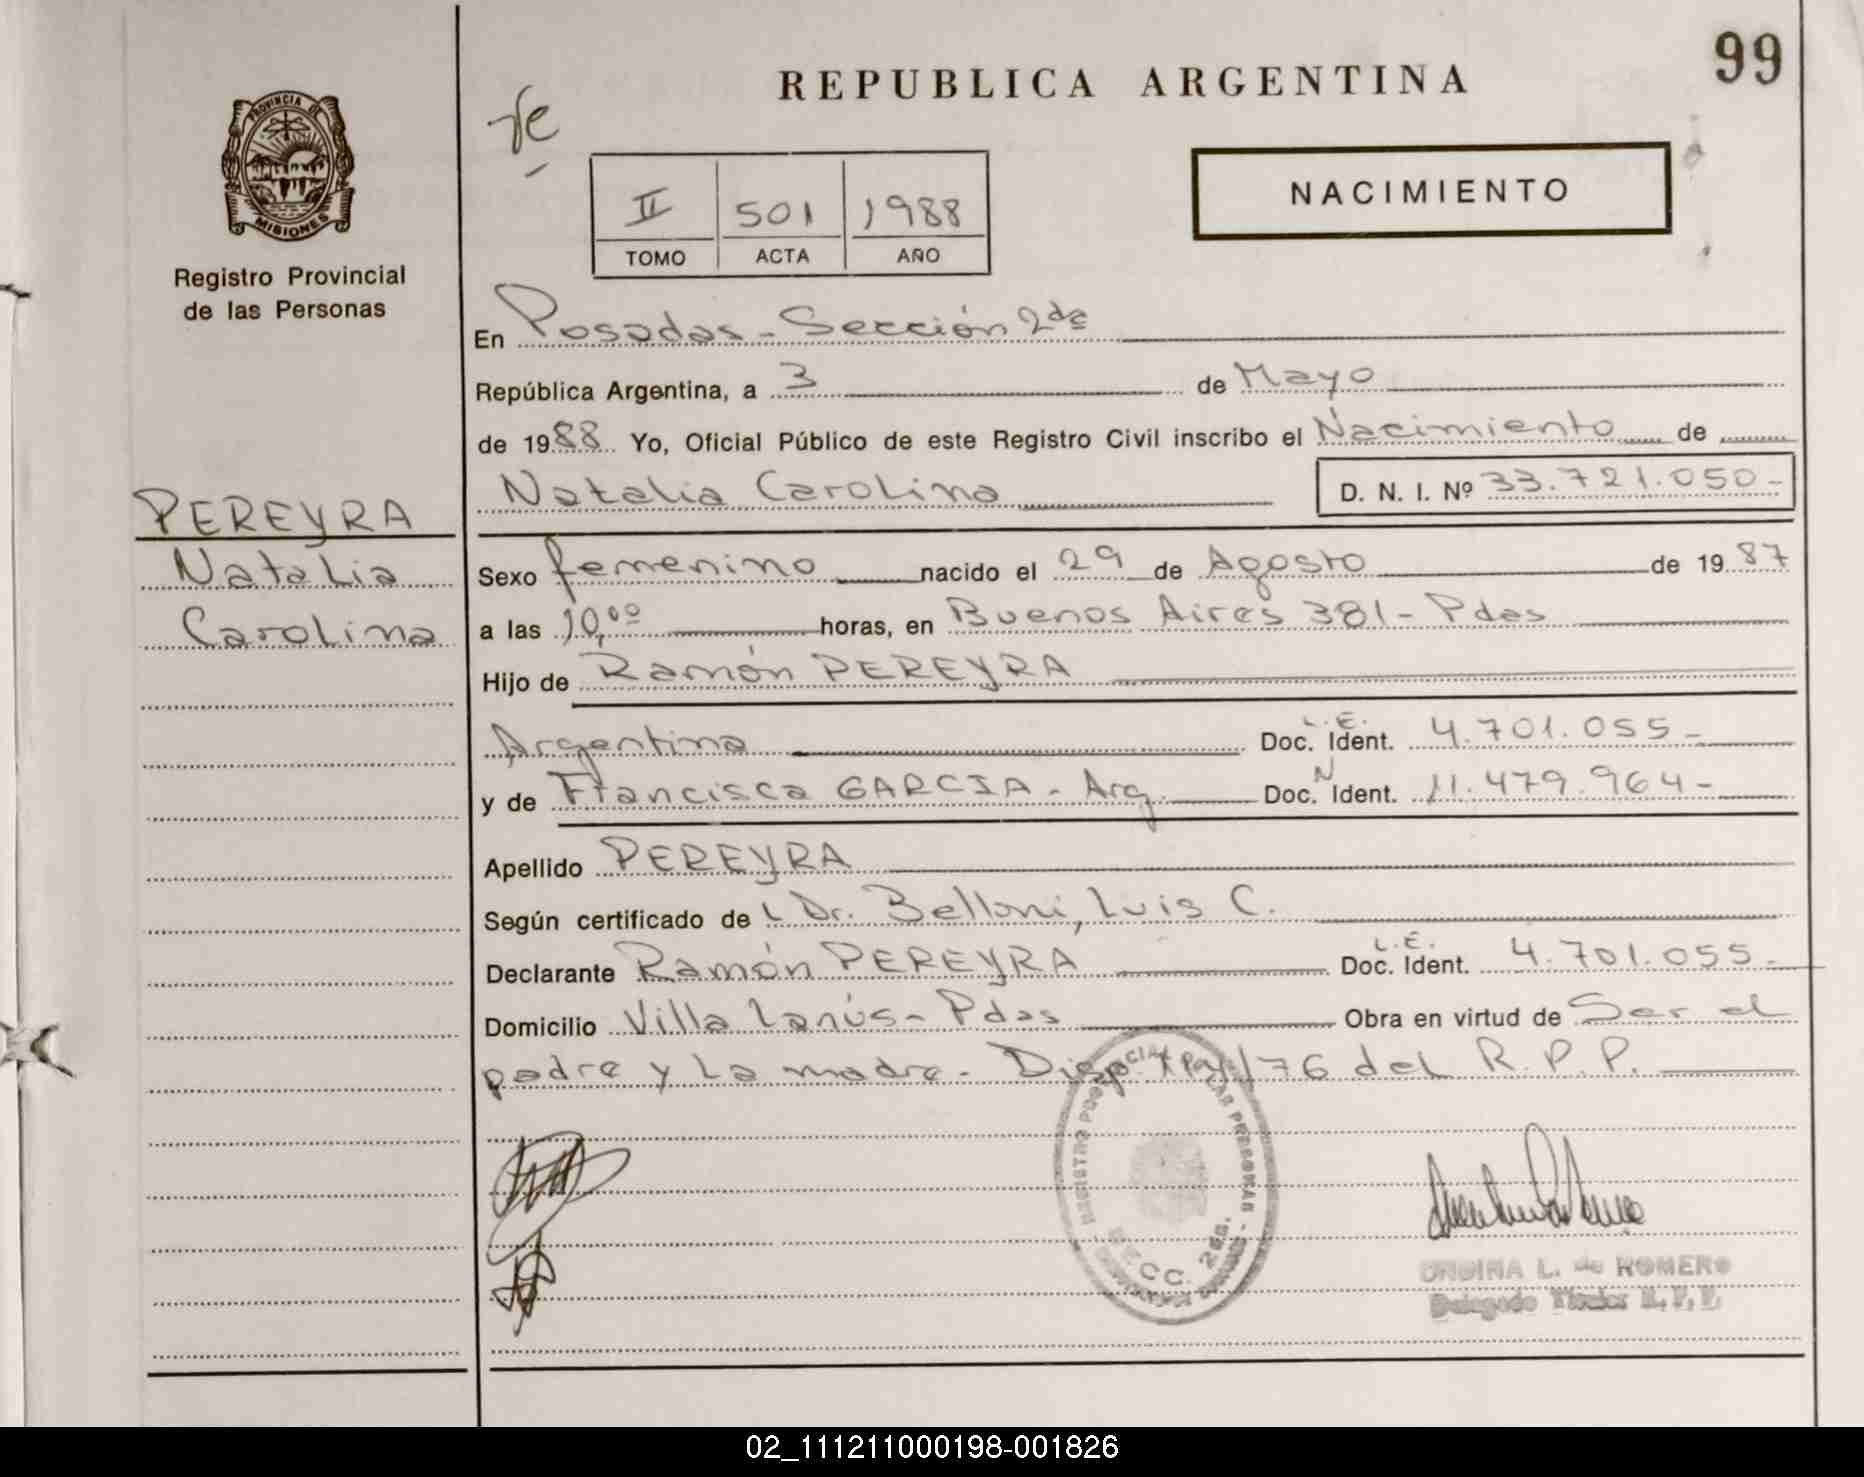 99
REPUBLICA ARGENTINA
PROVINCIA DE
MISIONES
Registro Provincial
de las Personas
NACIMIENTO
II 501 1988
TOMO ACTA AÑO
En Posadas - Sección 2da
República Argentina, a 3 de Mayo
de 1988 Yo, Oficial Público de este Registro Civil inscribo el Nacimiento de
Natalia Carolina D. N. I. Nº 33.721.050-
PEREYRA
Natalia
Carolina
Sexo femenino nacido el 29 de Agosto de 1987
a las 10,00 horas, en Buenos Aires 381 - Pdas
Hijo de Ramón PEREYRA
Argentina Doc. Ident. L.E. 4.701.055-
y de Francisca GARCIA - Arg. Doc. N Ident. 11.479.964-
Apellido PEREYRA
Según certificado de Dr. Belloni, Luis C.
Declarante Ramón PEREYRA Doc. Ident. L.E. 4.701.055-
Domicilio Villa Lanús - Pdas Obra en virtud de Ser el
padre y la madre - Disp. /76 del R.P.P.
SECC. 2da.
L. de ROMERO
Delegado Titular R.P.P.
02_111211000198-001826